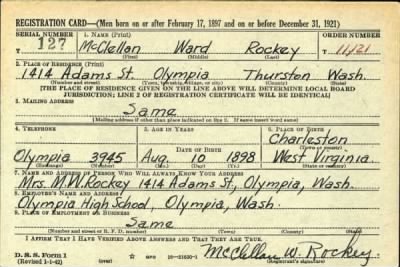 REGISTRATION CARD—(Men born on or after February 17, 1897 and on or before December 31, 1921)
SERIAL NUMBER 1. NAME (Print) ORDER NUMBER
127 McClellan Ward Rockey 11121
(First) (Middle) (Last)
2. PLACE OF RESIDENCE (Print)
1414 Adams St. Olympia Thurston Wash.
(Number and street) (Town, township, village, or city) (County) (State)
[THE PLACE OF RESIDENCE GIVEN ON THE LINE ABOVE WILL DETERMINE LOCAL BOARD
JURISDICTION; LINE 2 OF REGISTRATION CERTIFICATE WILL BE IDENTICAL]
3. MAILING ADDRESS
Same
[Mailing address if other than place indicated on line 2. If same insert word same]
4. TELEPHONE 5. AGE IN YEARS 6. PLACE OF BIRTH
Charleston
DATE OF BIRTH (Town or county)
Olympia 3945 Aug. 10 1898 West Virginia.
(Mo.) (Day) (Yr.) (State or country)
7. NAME AND ADDRESS OF PERSON WHO WILL ALWAYS KNOW YOUR ADDRESS
Mrs M.W. Rockey 1414 Adams St., Olympia, Wash.
8. EMPLOYER'S NAME AND ADDRESS
Olympia High School, Olympia, Wash.
9. PLACE OF EMPLOYMENT OR BUSINESS
Same
(Number and street or R. F. D. number) (Town) (County) (State)
I AFFIRM THAT I HAVE VERIFIED ABOVE ANSWERS AND THAT THEY ARE TRUE.
D. S. S. Form 1
(Revised 1-1-42) (over) McClellan W. Rockey
(Registrant's signature)